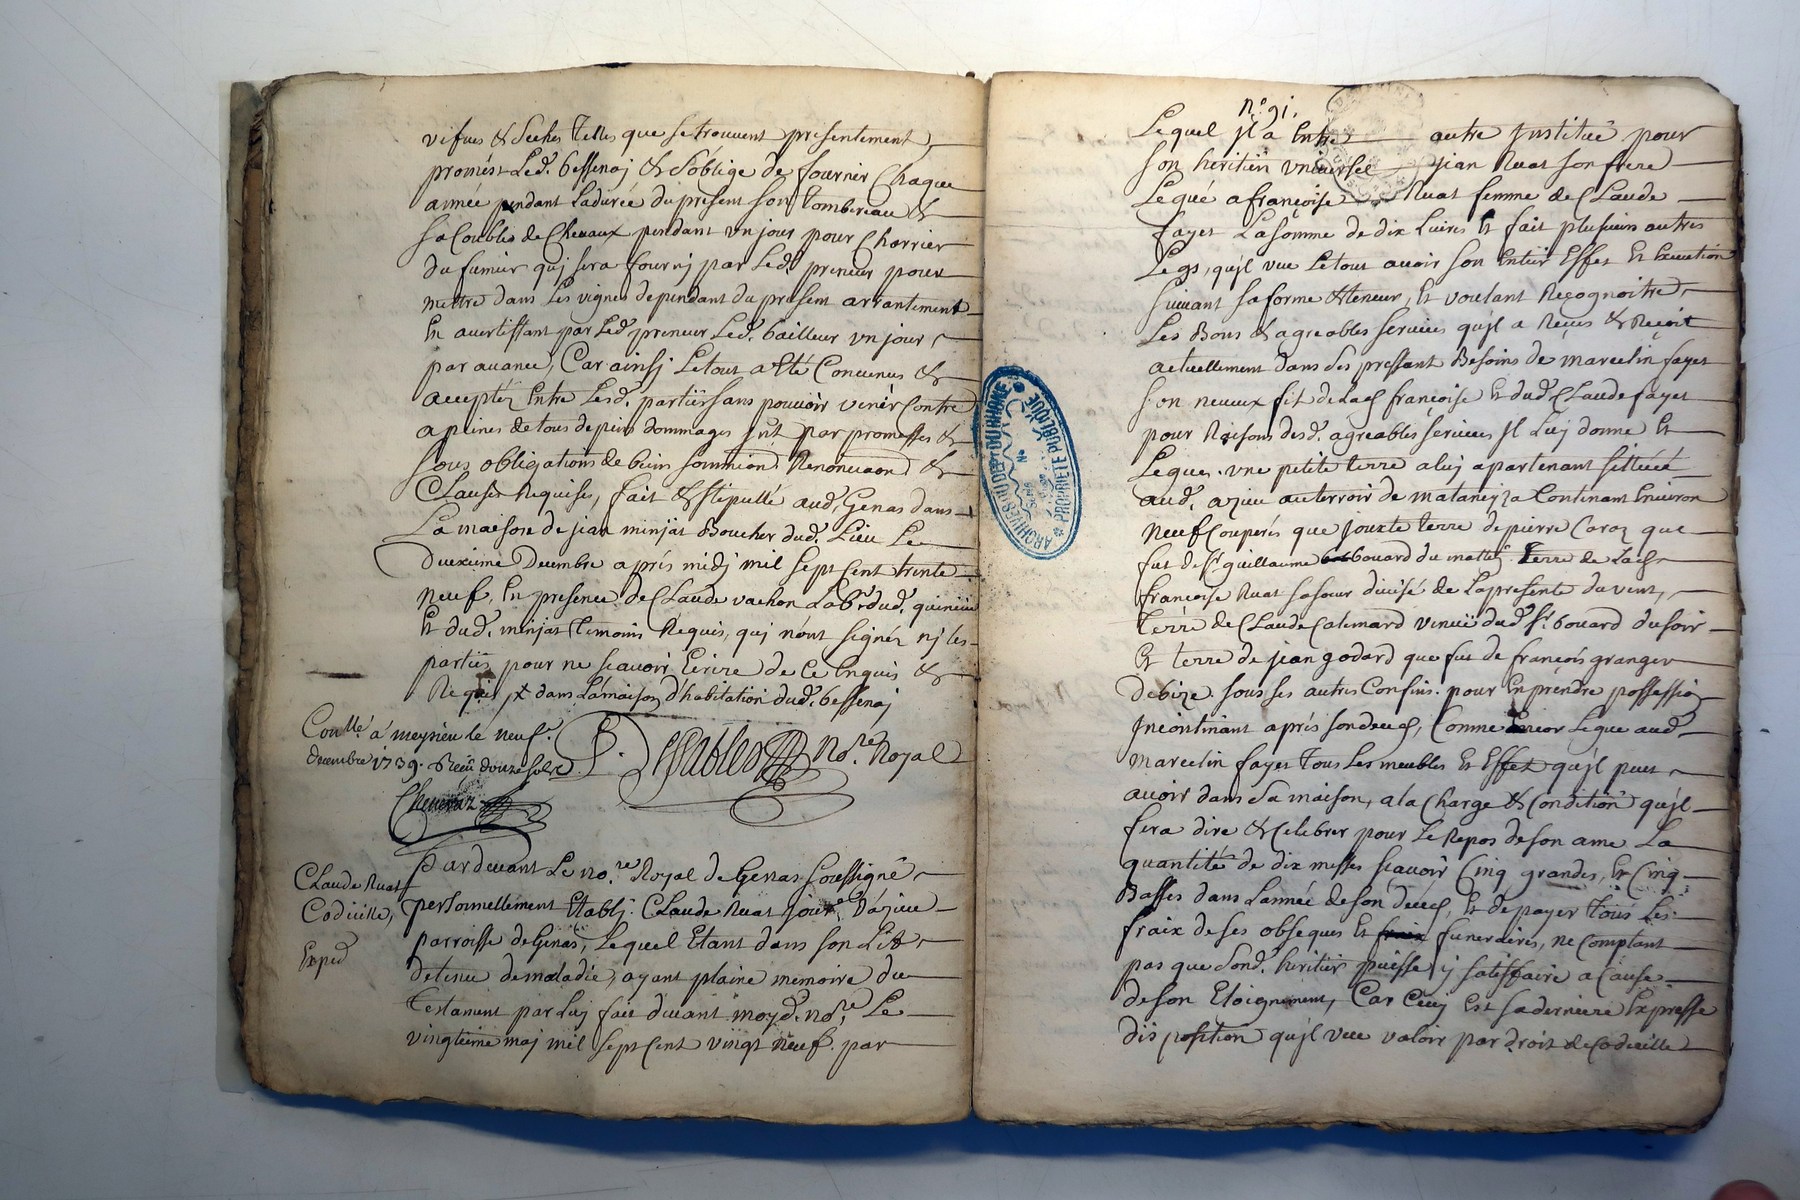 vifues & seches telles que se trouvent presentement
promést Led. bessenaj & s'oblige de fournir Chaque
année pendant La durée du present son tombereau &
sa Couble de Chevaux pendant un jour pour Charrier
du fumier quj sera fournj par Led. preneur pour
mettre dans Les vignes dependant du present arrantement
En avertissant par Led. preneur Led. bailleur un jour
par avance, Car ainsj Letout a Eté Convenus &
acceptéz Entre Lesd. partiës sans pouvoir venir Contre
a peines de tous depens dommages par promesses &
sous obligations de biens soumission Renonciaon &
Clauses Requises, fait & stipullé aud. Genas dans
La maison de jean minjat Boucher dud. Lieu Le
deuxieme Decembre aprés midj mil sept Cent trente
neuf, En presence de Claude vachon Lab.r dud.
Et dud. minjat temoins Requis, quj n'ont signéz nj les
parties pour ne scavoir Ecrire de Ce Enquis &
Requis, & dans La maison d'habitation dud. bessenaj
Dessables No.re Royal
Con.llé à meyrieu le neuf.
decembre 1739. Receu douze sols
Par devant Le no.re Royal de Genas soussigné
Claude Ruat
Codicille,
Exped
personnellement Etablj Claude Ruat jour.r d'azieu
parroisse de Genas, Lequel Etant dans son Lit
detenu de maladie, ayant plaine memoire du
testament par Luj fait devant moyd. no.re Le
vingtieme maj mil sept Cent vingt neuf. par
n.o 91.
Lequel jl a Entre autre Jnstitué pour
son heritiér universel jean Ruat son frere
Legué a françoise Ruat femme de Claude
fayet La somme de dix Livres Et fait plusieurs autres
Legs, qu'jl veut Le tout avoir son Entiér Effet Et Execution
suivant sa forme & teneur, Et voulant Recognoitre
Les Bons & agreables services qu'jl a Reçus & Reçoit
actuellement dans ses pressant Besoins de marcelin fayet
son neveux fils de Lad. françoise Et dud. Claude fayet
pour Raisons desd. agreables services jl Luj donne Et
Legue. une petite terre a luj apartenant sittüée
aud. azieu au terroir de Contenant Environ
neuf Couperés que jouxte terre de pierre Caraz que
fut de s.r guillaume bouard du matin. terre de Lad.
françoise Ruat sa sœur divisé de La presente du vent,
terre de Claude Calemard venuë dud. s.r bouard du soir
Et terre de jean godard que fut de francois granger
de bize. sous ses autres Confins. pour En prendre possession
Jncontinant aprés son decés, Comme Encor Legue aud.
marcelin fayet tous Les meubles Et Effets qu'jl peut
avoir dans sa maison, a la Charge & Condition qu'jl
fera dire & Celebrer pour Le Repos de son ame La
quantité de dix messes sçavoir Cinq grandes, Et Cinq
Basses dans L'année de son decés, Et de payer tous Les
fraix de ses obseques Et funeraires, ne Comptant
pas que Sond. heritier puisse y satisffaire a Cause
de son Eloignement, Car Cecy Est sa derniere Expresse
disposition qu'jl veut valoir par droit de Codicille
ARCHIVES DU DEPT DU RHONE
PROPRIETE PUBLIQUE